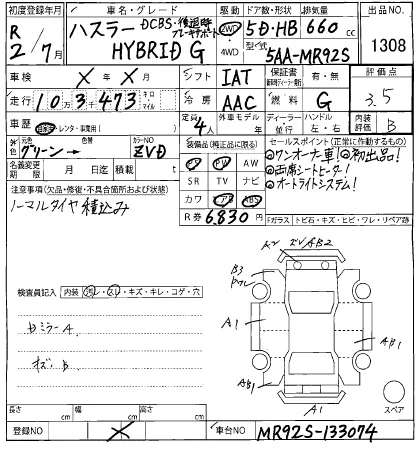 初度登録年月 車名・グレード 駆動 ドア数/形状 排気量 出品NO
R 2/7月 ハスラー DCBS・後退時ブレーキサポート 2WD 5D・HB 660cc
HYBRID G 4WD 型式 5AA-MR92S 1308
車検 X年X月 シフト IAT 保証書 有・無 評価点
走行 103473 キロ マイル 冷房 AAC 燃料 G 3.5
車歴 自家用 レンタ・事業用( ) 定員 4人 外車モデル 年 ディーラー 並行 ハンドル 左・右 内装評価 B
外色 元色 グリーン→ 色替 カラーNO ZVD 装備品(純正品に限る) セールスポイント(正常に作動するもの)
名義変更期限 月 日迄 積載 t PS PW AW ◎ワンオーナー車!◎初出品!
注意事項(欠品・修復・不具合箇所および状態) SR TV ナビ ◎両席シートヒーター!
ノーマルタイヤ積込み カワ エアB ABS ◎オートライトシステム!
R券 6,830円 Fガラス トビ石・キズ・ヒビ・ワレ・リペア跡
A2 ZV AB2
検査員記入 内装 汚レ・スレ・キズ・キレ・コゲ・穴 B3
ワレ
ミラーA A1
B AB1
AB1
長さ cm 幅 cm 高さ cm A1 スペア
登録NO X 車台NO MR92S-133074